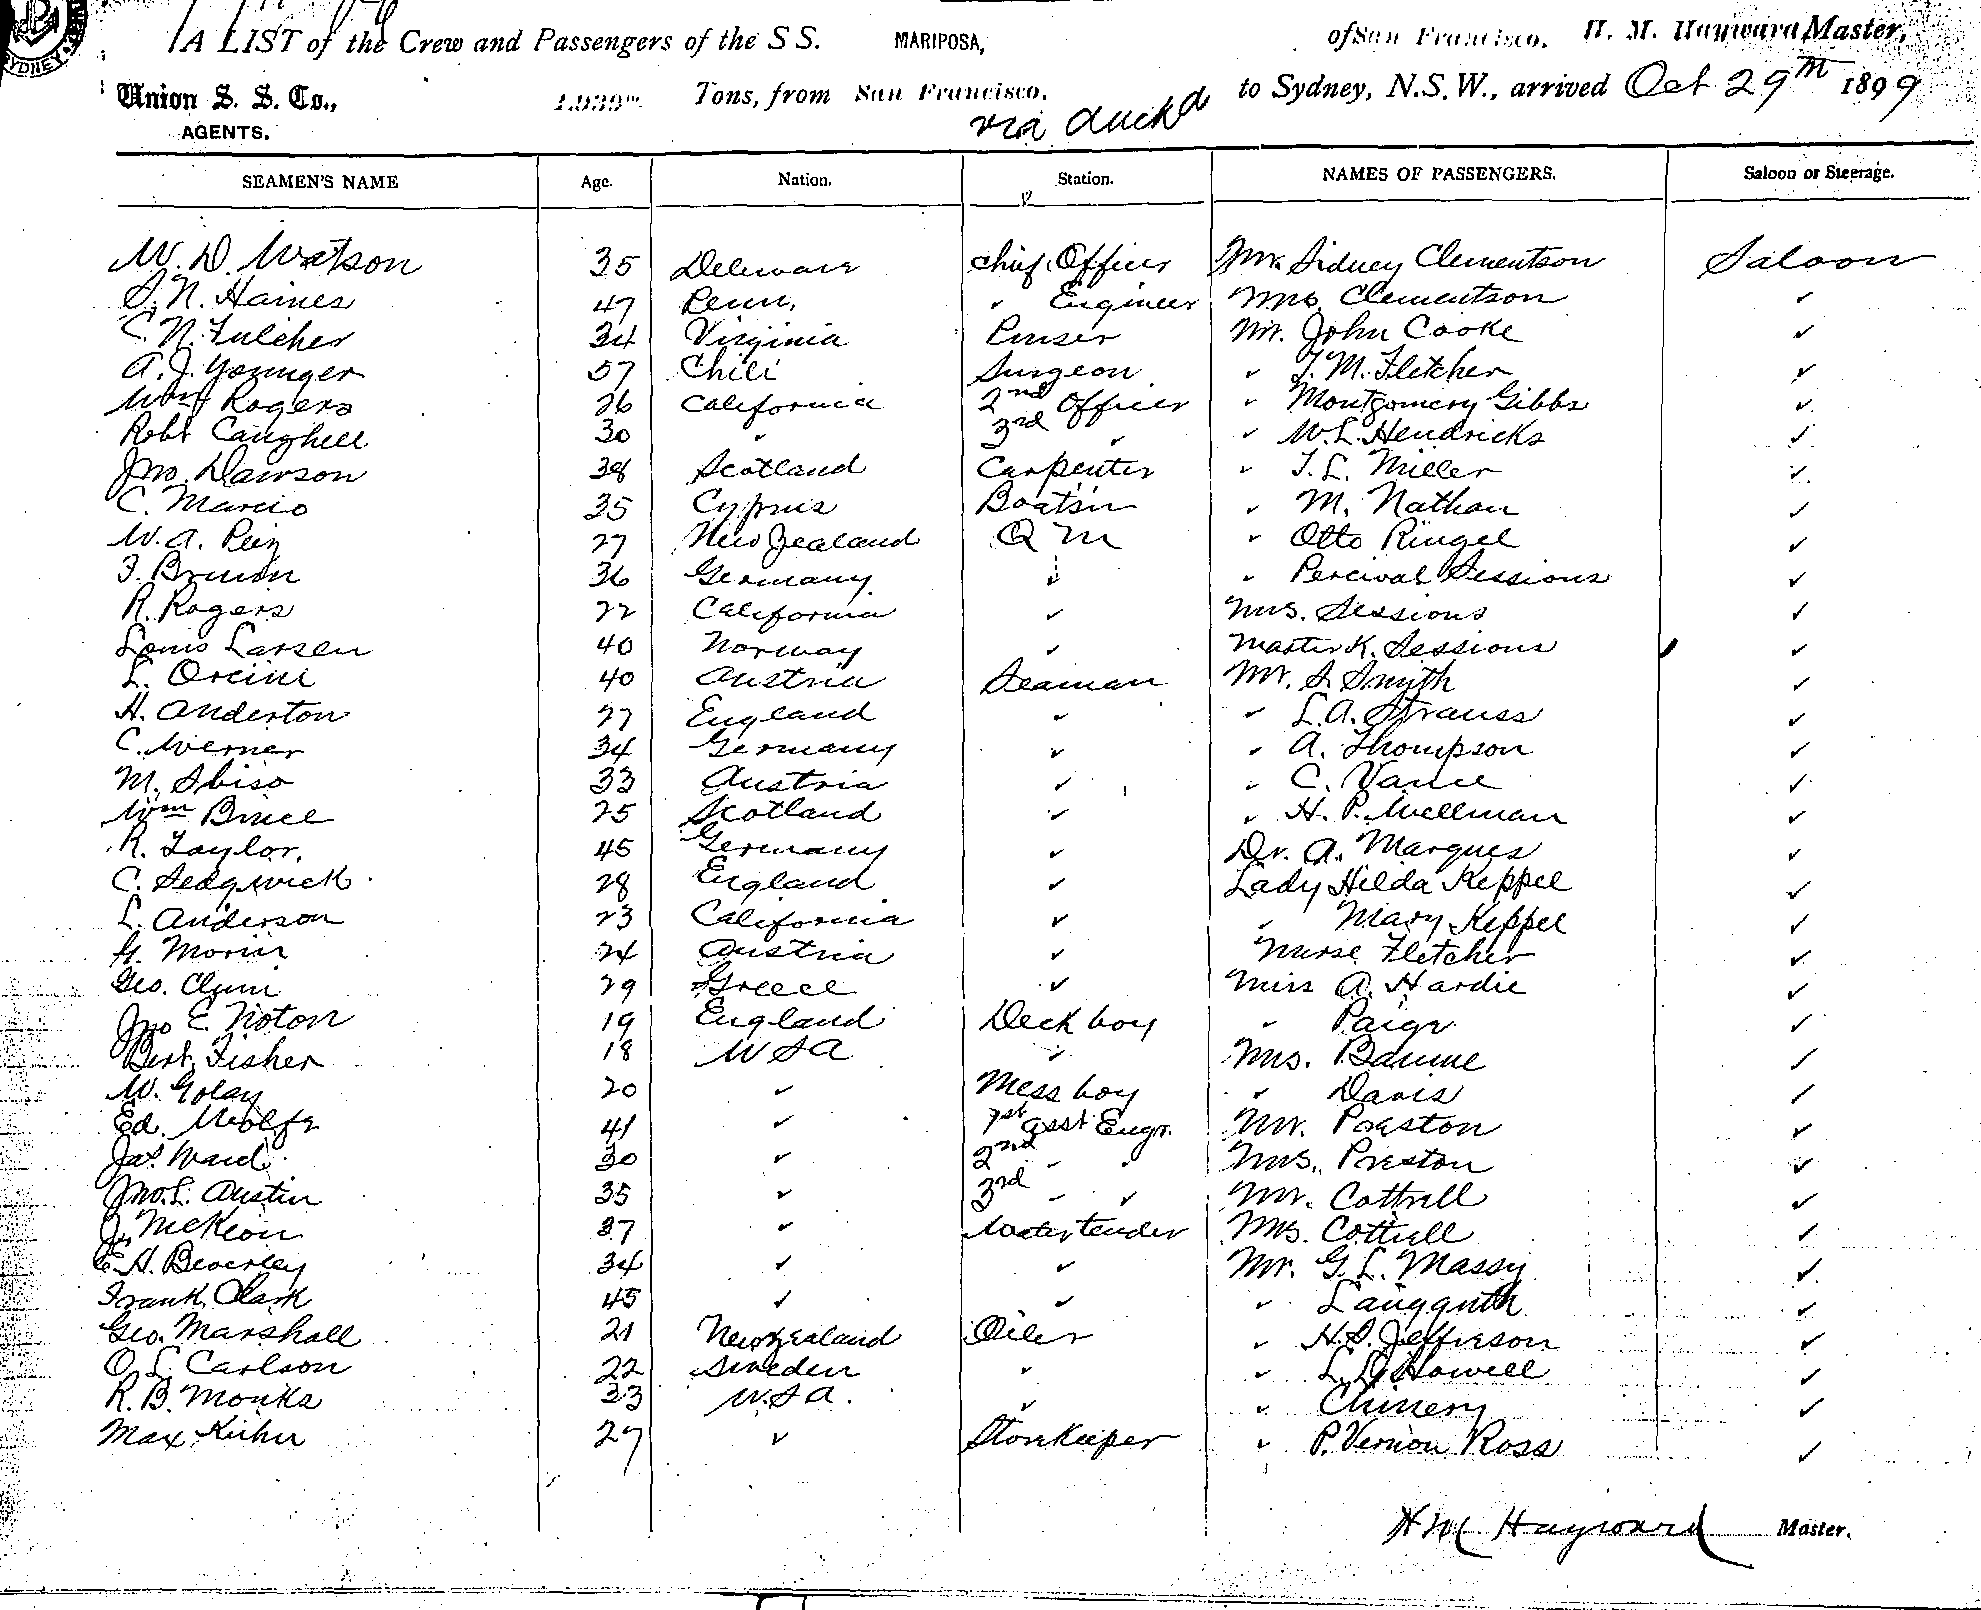 A LIST of the Crew and Passengers of the S S. MARIPOSA, of San Francisco, H. M. Hayward Master,
Union S. S. Co., Tons, from San Francisco, to Sydney, N.S.W., arrived Oct 29th 1899
AGENTS. via Auckd
SEAMEN'S NAME Age. Nation. Station. NAMES OF PASSENGERS. Saloon or Steerage.
W. D. Watson 35 Deleware Chief Officer Mr. Sidney Clementson Saloon
S. N. Haines 47 Penn. " Engineer Mrs Clementson ✓
C. N. Fulcher 34 Virginia Purser Mr. John Cooke ✓
A. J. Younger 57 Chili Surgeon " T. M. Fletcher ✓
Wm Rogers 26 California 2nd Officer " Montgomery Gibbs ✓
Robt Caughell 30 " 3rd " " W. L. Hendricks ✓
Jno. Dawson 38 Scotland Carpenter " T. L. Miller ✓
C. Marcio 35 Cyprus Boatsn " M. Nathan ✓
W. A. 27 New Zealand Q M " Otto Ringel ✓
F. 36 Germany " " Percival Sessions ✓
R. Rogers 22 California " Mrs. Sessions ✓
Louis Larsen 40 Norway " Master K. Sessions ✓
L. Orcini 40 Austria Seaman Mr. S Smyth ✓
H. Anderton 27 England " " L. A. Strauss ✓
C. Werner 34 Germany " " A. Thompson ✓
M. Sbiso 33 Austria " " C. Vance ✓
Wm Bruce 25 Scotland " " H. P. Wellman ✓
R. Taylor. 45 Germany " Dr. A. Marques ✓
C. Sedgwick 28 England " Lady Hilda Keppel ✓
L. Anderson 23 California " " Mary Keppel ✓
24 Austria " Nurse Fletcher ✓
Geo. 29 Greece " Miss A. Hardie ✓
Jno E Noton 19 England Deck boy " Paige ✓
Bert. Fisher 18 U S A " Mrs. ✓
W. Golay 20 " Mess boy " Davis ✓
Ed. Wolfe 41 " 1st Asst Engr. Mr. Preston ✓
Jas. Ward 30 " 2nd " " Mrs. Preston ✓
Jno. L. Austin 35 " 3rd " " Mr. Cottrell ✓
J. McKeon 37 " Water tender Mrs. Cottrell ✓
E. H. Beverley 34 " " Mr. G. L. Massy ✓
Frank Clark 45 " " " ✓
Geo. Marshall 21 New Zealand Oiler " H. S. Jefferson ✓
O. L. Carlson 22 Sweden " " Howell ✓
R. B. Monks 33 U.S.A. " " Chinery ✓
Max Kuhn 27 " Storekeeper " P. Vernon Ross ✓
H M Hayward Master.